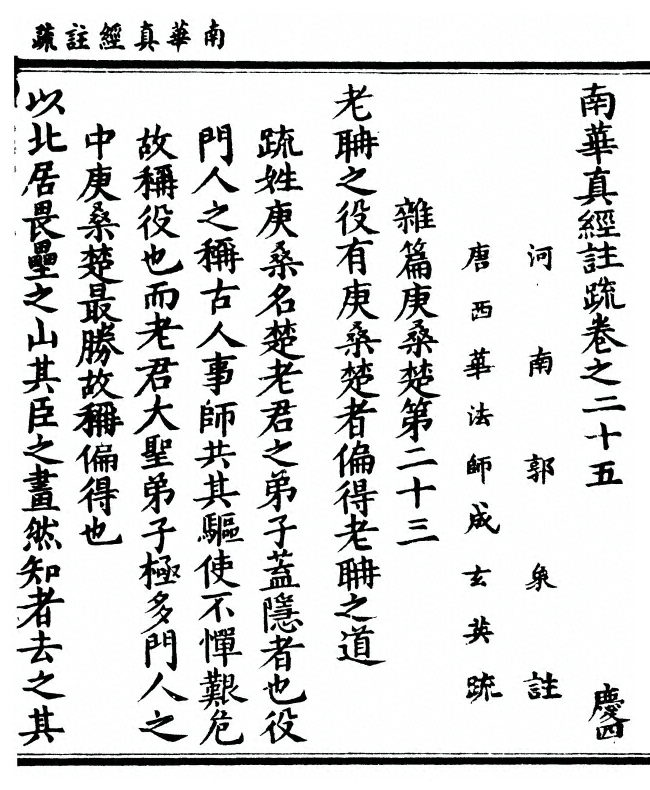 南華真經註疏
南華真經註疏卷之二十五 慶四
河南郭象註
唐西華法師成玄英疏
雜篇庚桑楚第二十三
老聃之役有庚桑楚者偏得老聃之道
疏姓庚桑名楚老君之弟子蓋隱者也役
門人之稱古人事師共其驅使不憚艱危
故稱役也而老君大聖弟子極多門人之
中庚桑楚最勝故稱偏得也
以北居畏壘之山其臣之畫然知者去之其